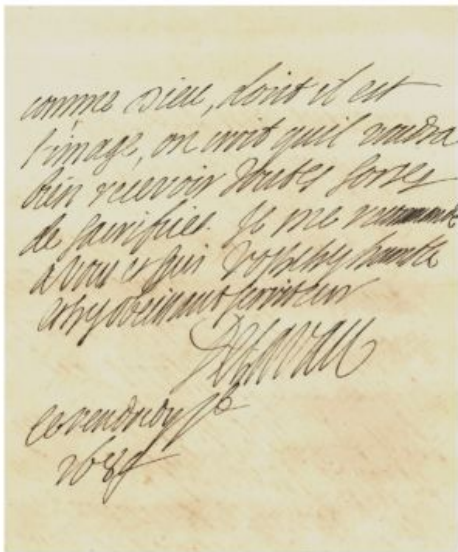 comme dieu, dont il est
l'image, on croit qu'il voudra
bien recevoir toutes sortes
de sacrifices. Je me recommande
a vous et suis vostre tres humble
et tres obeissant serviteur
ce vendredy